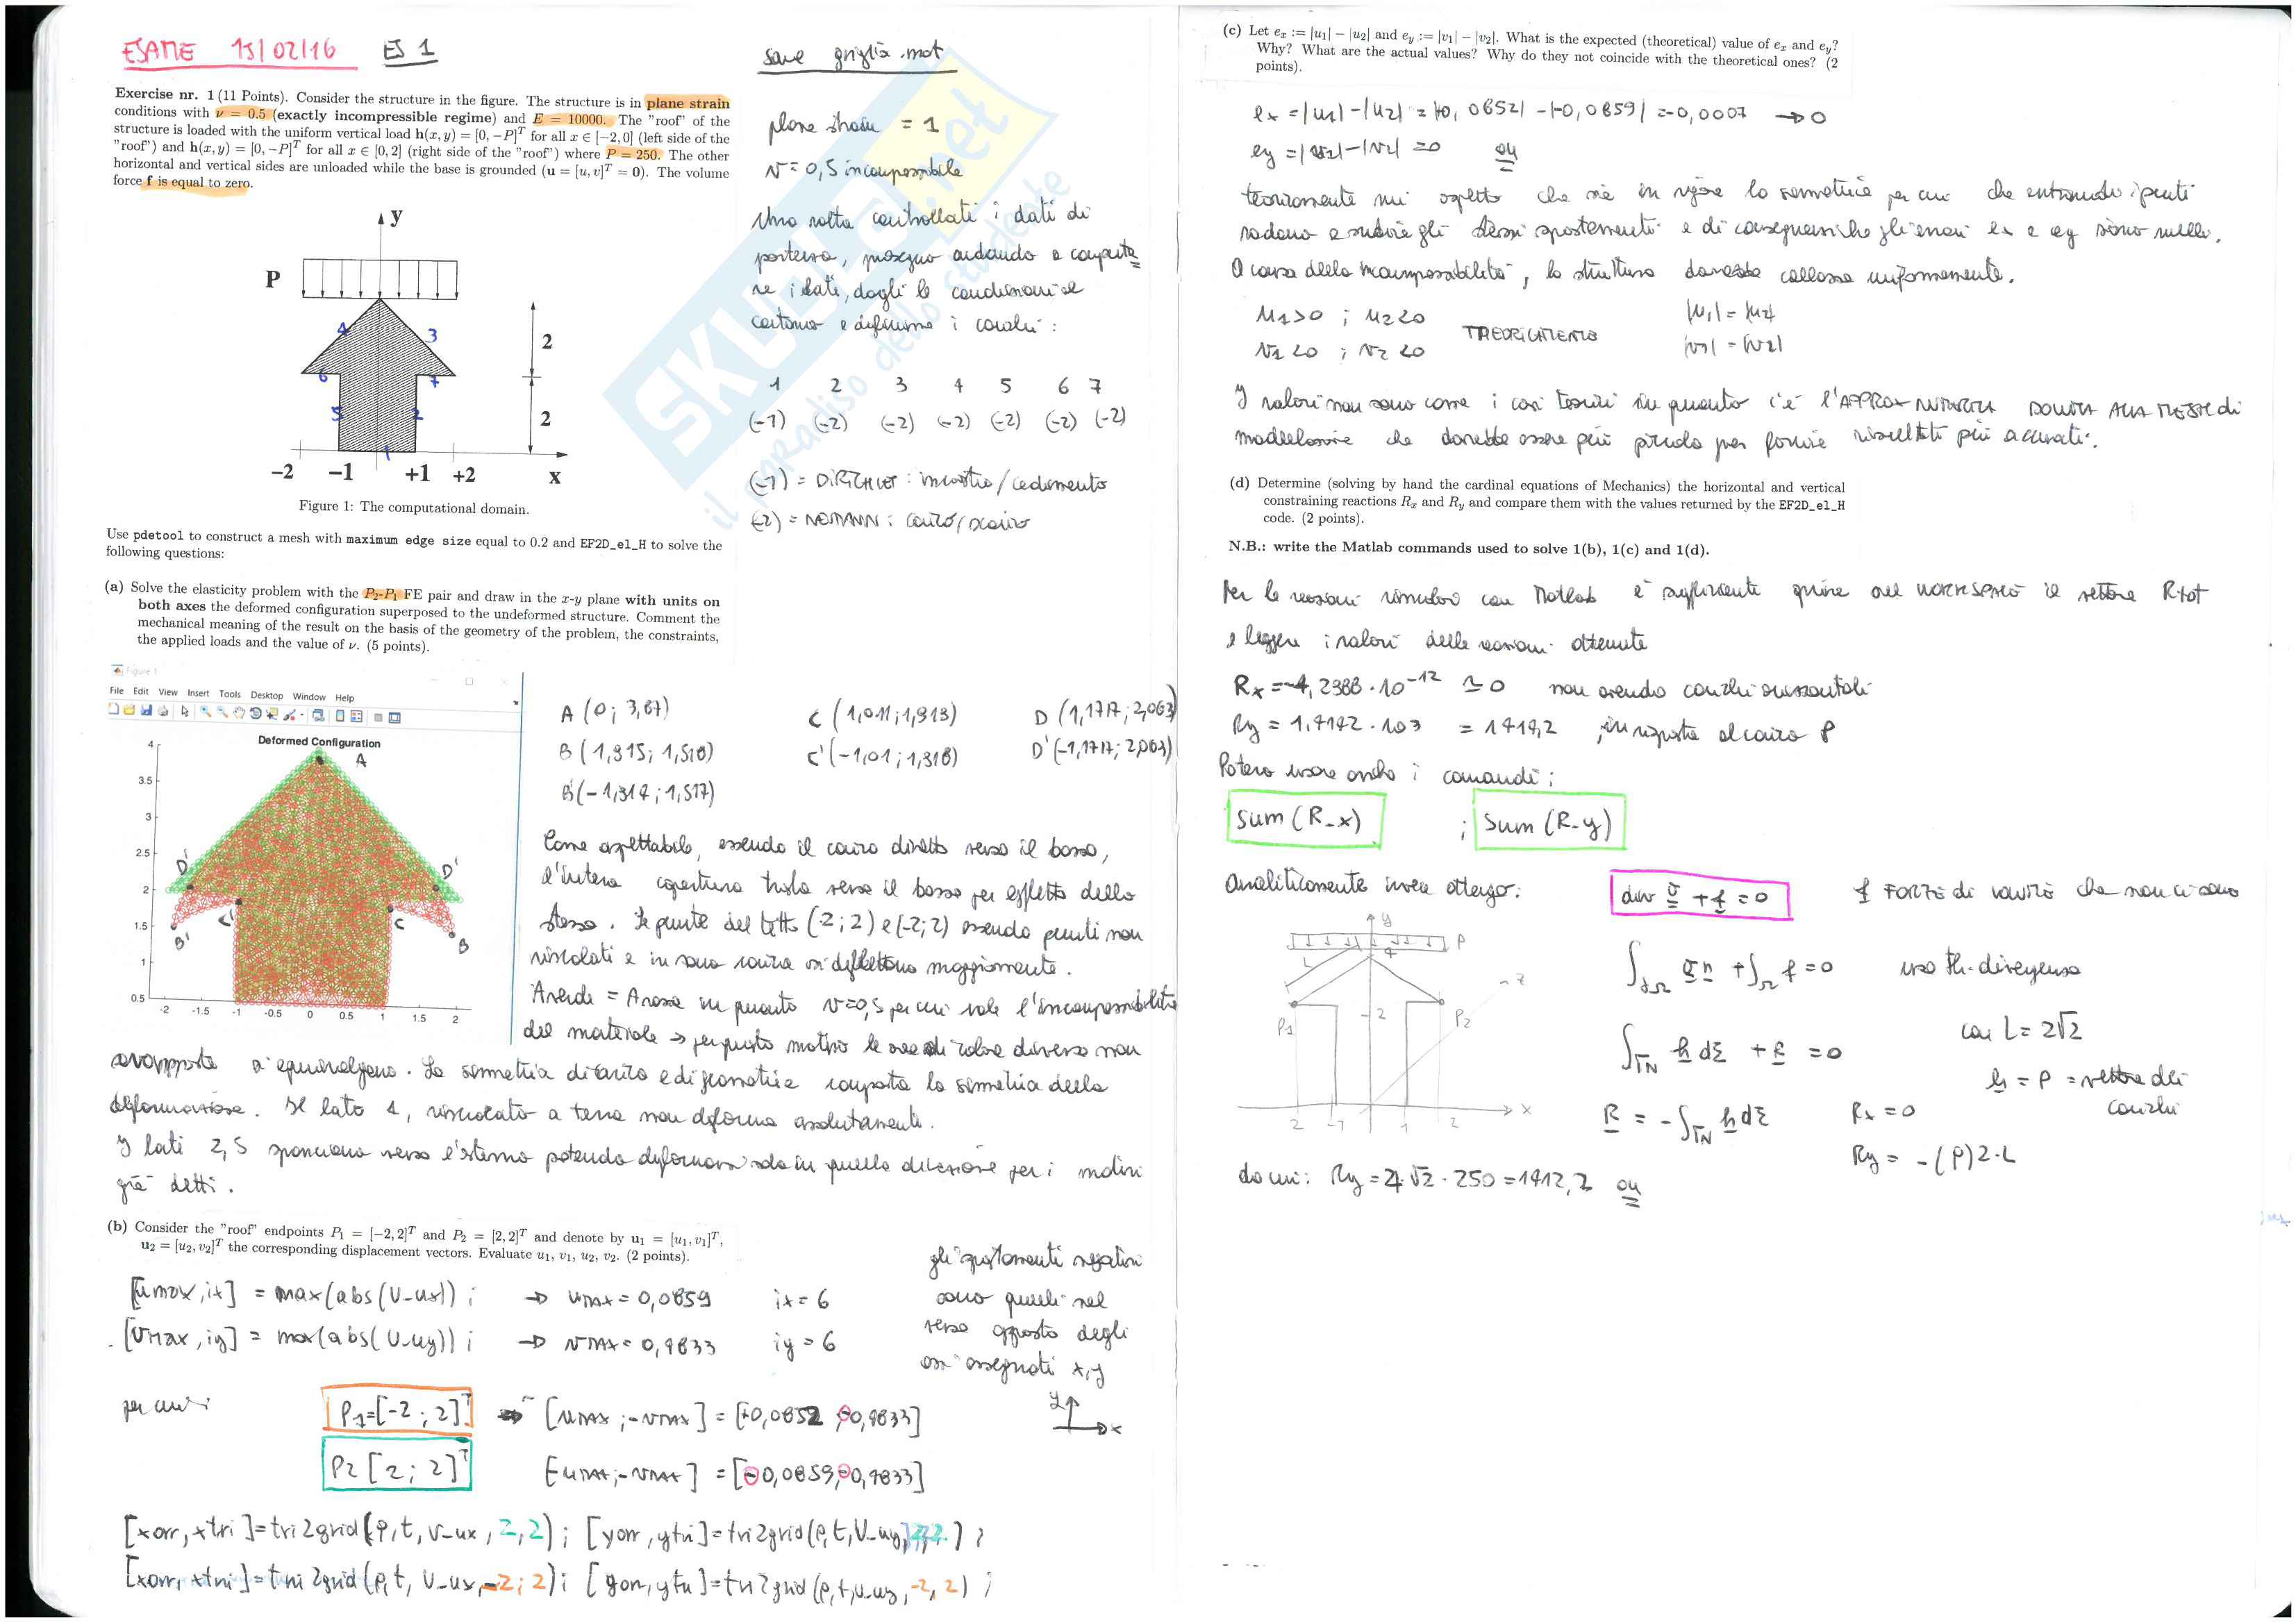 ESAME 15/02/16 ES 1
Exercise nr. 1 (11 Points). Consider the structure in the figure. The structure is in plane strain
conditions with ν = 0.5 (exactly incompressible regime) and E = 10000. The "roof" of the
structure is loaded with the uniform vertical load h(x, y) = [0, −P]^T for all x ∈ [−2, 0] (left side of the
"roof") and h(x, y) = [0, −P]^T for all x ∈ [0, 2] (right side of the "roof") where P = 250. The other
horizontal and vertical sides are unloaded while the base is grounded (u = [u, v]^T = 0). The volume
force f is equal to zero.
y
P
4 3
2
6 7
5 2
2
1
−2 −1 +1 +2 x
Figure 1: The computational domain.
Use pdetool to construct a mesh with maximum edge size equal to 0.2 and EF2D_el_H to solve the
following questions:
(a) Solve the elasticity problem with the P2-P1 FE pair and draw in the x-y plane with units on
both axes the deformed configuration superposed to the undeformed structure. Comment the
mechanical meaning of the result on the basis of the geometry of the problem, the constraints,
the applied loads and the value of ν. (5 points).
save griglia.mat
plane strain = 1
ν = 0,5 incompressibile
Una volta controllati i dati di
partenza, proseguo andando a
i lati, dargli le condizioni al
contorno e definirne i carichi:
1 2 3 4 5 6 7
(-1) (-2) (-2) (-2) (-2) (-2) (-2)
(-1) = DIRICHLET: incastro/cedimento
(-2) = NEUMANN: carico/scarico
Figure 1
File Edit View Insert Tools Desktop Window Help
Deformed Configuration
A
4
3.5
3
2.5
2
1.5
1
0.5
D' D
C' C
B' B
-2 -1.5 -1 -0.5 0 0.5 1 1.5 2
A (0; 3,87) C (1,011; 1,913) D (1,1717; 2,063)
B (1,915; 1,510) C' (-1,01; 1,318) D' (-1,1717; 2,063)
B' (-1,317; 1,517)
Come aspettabile, essendo il carico diretto verso il basso,
l'intera copertura verso il basso per effetto dello
stesso. Le punte del tetto (2; 2) e (-2; 2) essendo punti non
vincolati e in si deflettono maggiormente.
Averde = Arossa in quanto ν=0,5 per cui vale l'incompressibilità
del materiale → per questo motivo le aree di colore diverso non
sovrapposte si equivalgono. La simmetria di carico e di geometria comporta la simmetria della
deformazione. Il lato 1, vincolato a terra non deforma assolutamente.
I lati 2, 5 spanciano verso l'esterno potendo deformarsi solo in quella direzione per i motivi
già detti.
(b) Consider the "roof" endpoints P1 = [−2, 2]^T and P2 = [2, 2]^T and denote by u1 = [u1, v1]^T,
u2 = [u2, v2]^T the corresponding displacement vectors. Evaluate u1, v1, u2, v2. (2 points).
[umax, ix] = max(abs(U_ux)); → umax = 0,0859 ix = 6
[vmax, iy] = max(abs(U_uy)); → vmax = 0,4833 iy = 6
gli spostamenti negativi
sono quelli nel
verso opposto degli
assi assegnati x,y
y x
per cui:
P1=[-2; 2]^T → [umax; -vmax] = [+0,0852; -0,4833]
P2 [2; 2]^T [-umax; -vmax] = [-0,0859; -0,4833]
[xorr, xtri]=tri2grid(p,t,U_ux,2,2); [yorr, ytri]=tri2grid(p,t,U_uy,2,2);
[xorr, xtri]=tri2grid(p,t,U_ux,-2;2); [yorr, ytri]=tri2grid(p,t,U_uy,-2,2);
(c) Let ex := |u1| − |u2| and ey := |v1| − |v2|. What is the expected (theoretical) value of ex and ey?
Why? What are the actual values? Why do they not coincide with the theoretical ones? (2
points).
ex = |u1| - |u2| = |+0,0852| - |-0,0859| = -0,0007 → 0
ey = |v2| - |v1| = 0 OK
teoricamente mi aspetto che sia in vigore la simmetria per cui che entrambi i punti
vadano a subire gli stessi spostamenti e di conseguenza che gli errori ex e ey siano nulli.
A causa della incompressibilità, la struttura dovrebbe collassare uniformemente.
u1>0 ; u2<0 TEORICAMENTE |u1| = |u2|
v1<0 ; v2<0 |v1| = |v2|
I valori non sono come i casi teorici in quanto c'è l'APPROX NUMERICA DOVUTA ALLA MESH di
modellazione che dovrebbe essere più piccola per fornire risultati più accurati.
(d) Determine (solving by hand the cardinal equations of Mechanics) the horizontal and vertical
constraining reactions Rx and Ry and compare them with the values returned by the EF2D_el_H
code. (2 points).
N.B.: write the Matlab commands used to solve 1(b), 1(c) and 1(d).
Per le reazioni vincolari con Matlab è sufficiente aprire nel WORKSPACE il vettore Rtot
e leggere i valori delle reazioni ottenute
Rx = -4,2388·10^-12 ≃ 0 non avendo carichi orizzontali
Ry = 1,4142·10^3 = 1414,2 ; in risposta al carico P
Potevo usare anche i comandi:
sum(R_x) ; sum(R_y)
Analiticamente invece ottengo:
div σ + f = 0 f FORZE di volume che non ci sono
∫∂Ω σn + ∫Ω f = 0 uso th. divergenza
∫ΓN h dΣ + R = 0 con L = 2√2
h = P = vettore dei carichi
R = -∫ΓN h dΣ Rx = 0
Ry = -(P)2·L
y P
L 4
P1 2 P2
2 -1 1 2 x
da cui: Ry = 4·√2·250 = 1412,2 OK